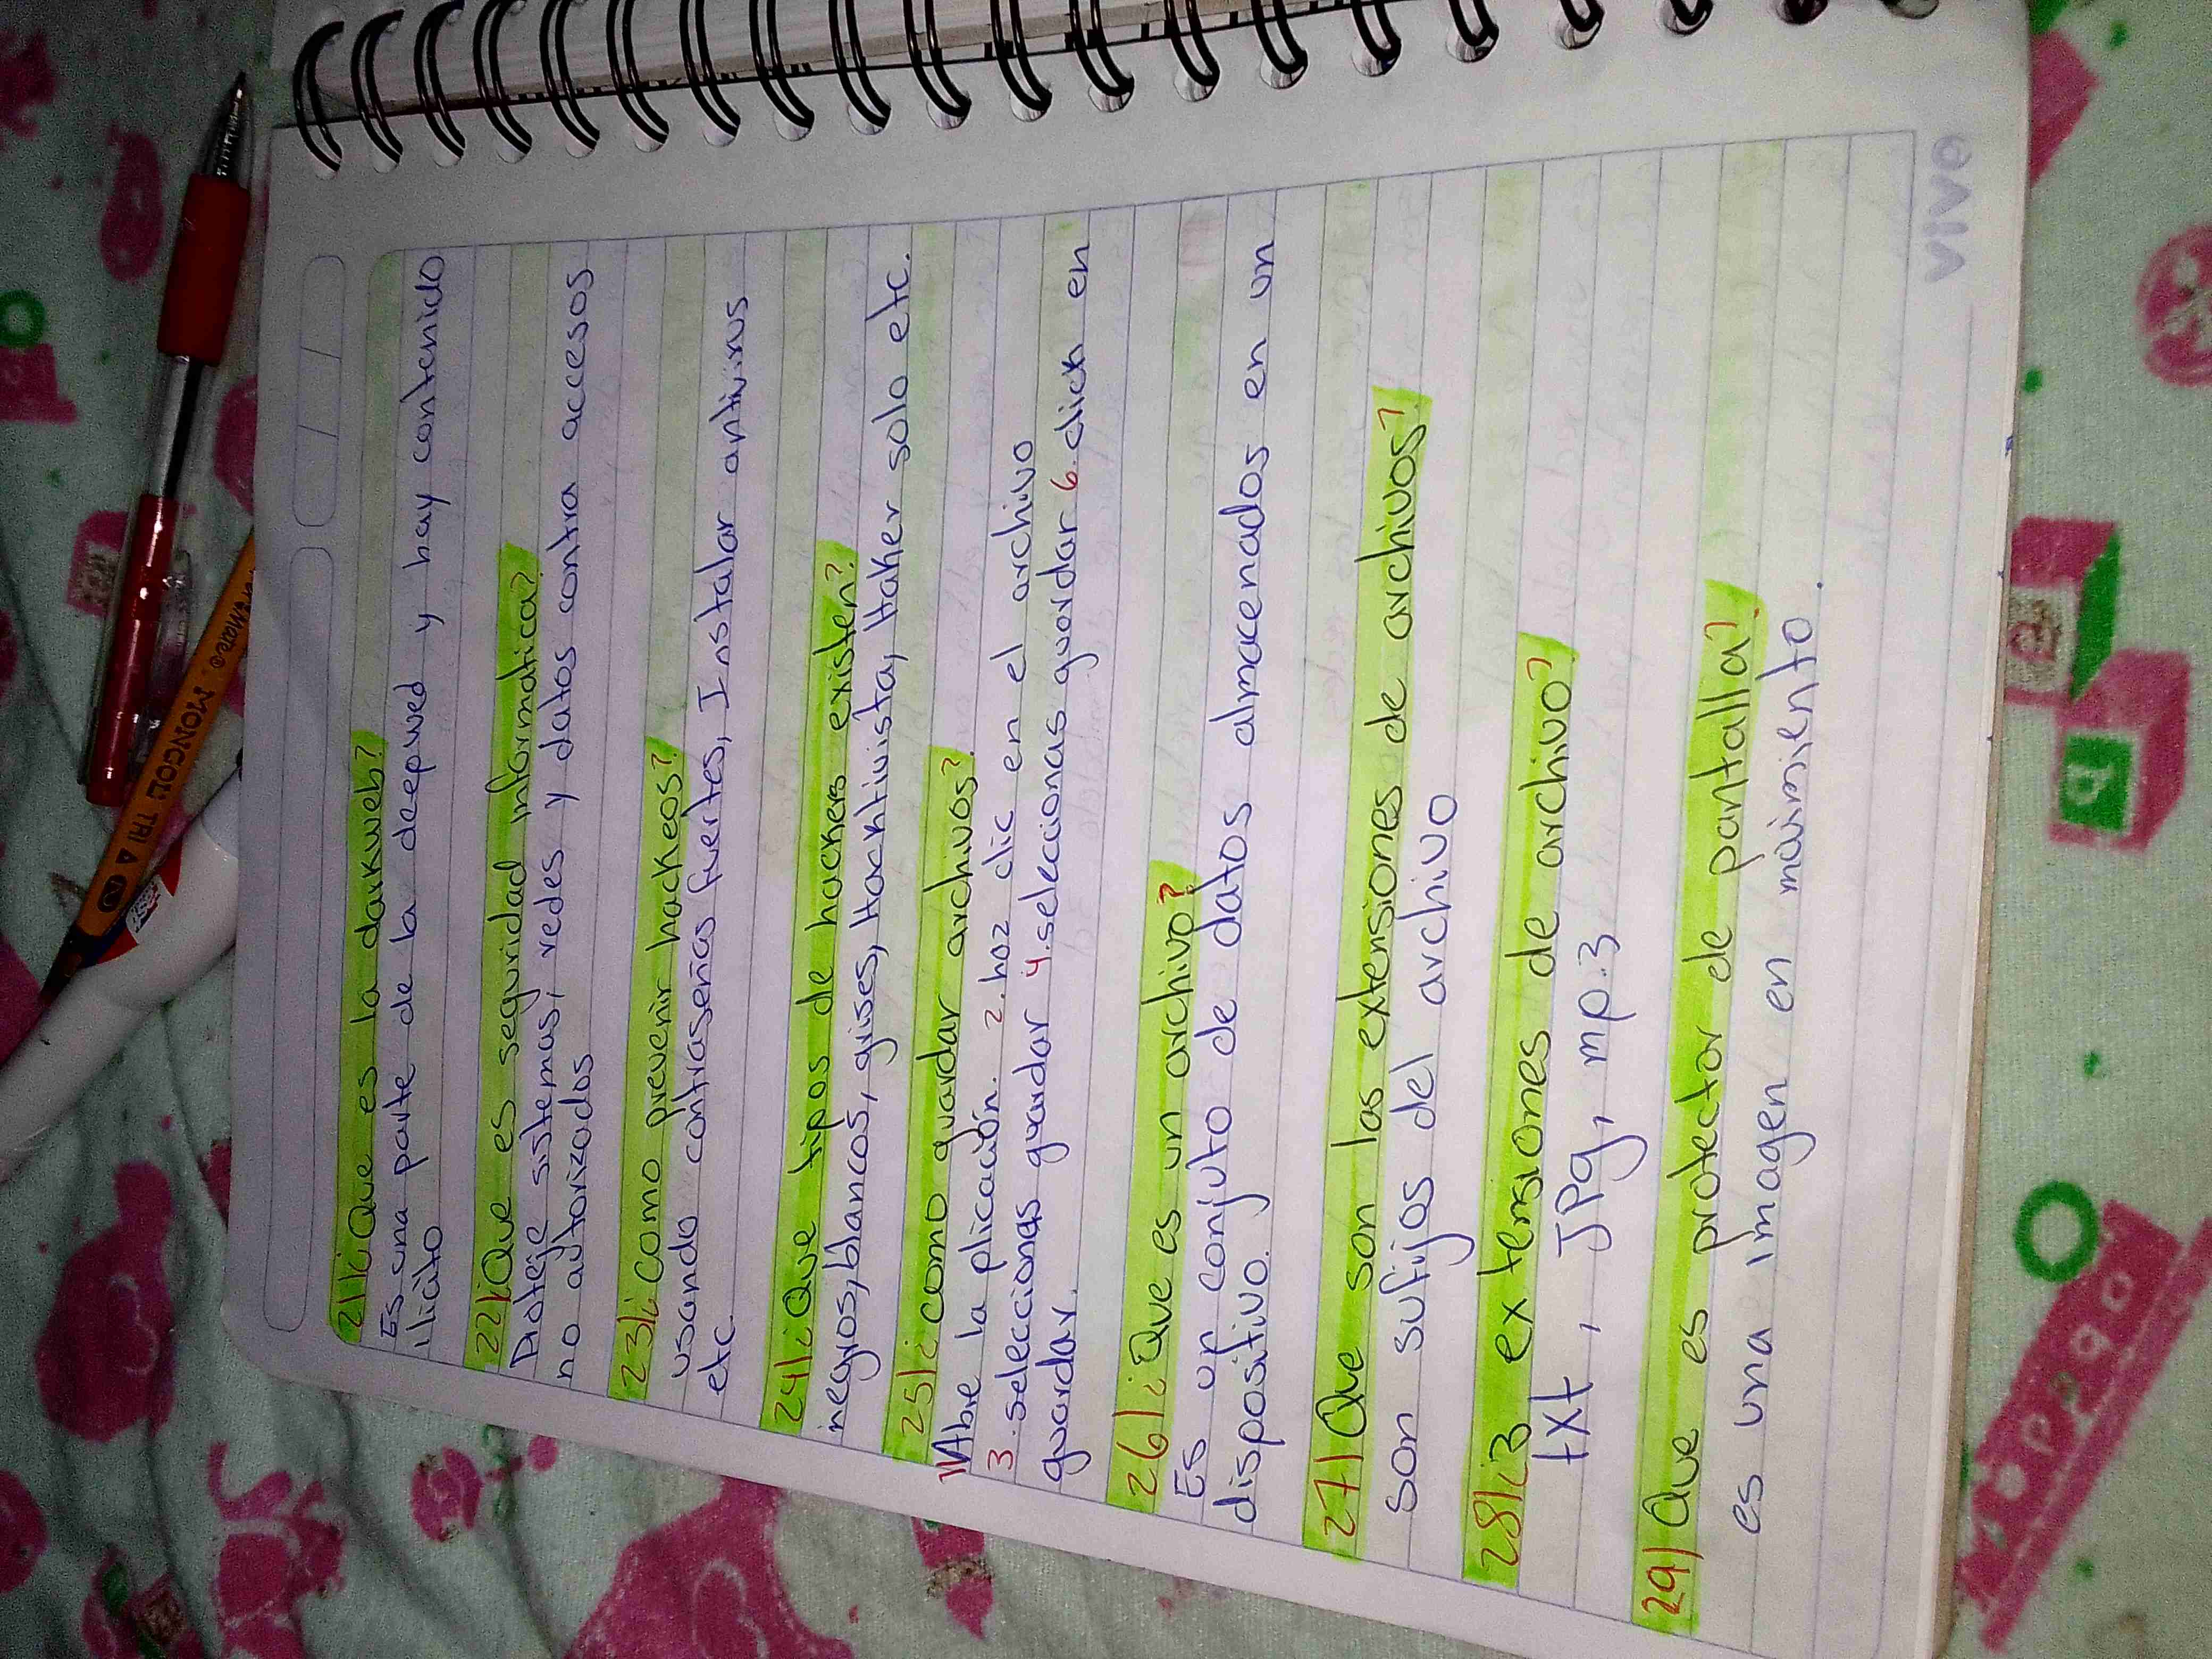 21|¿Que es la darkweb?
Es una parte de la deepwed y hay contenido
ilicito
22|¿Que es seguridad informatica?
Proteje sistemas, redes y datos contra accesos
no autorizados
23|¿como prevenir hackeos?
usando contraseñas fuertes, Instalar antivirus
etc.
24|¿Que tipos de hackers existen?
negros, blancos, grises, Hacktivista, Haker solo etc.
25|¿como guardar archivos?
1|Abre la plicación. 2. haz clic en el archivo
3. seleccionas guardar 4. seleccionas guardar 6. click en
guardar.
26|¿Que es un archivo?
Es un conjuto de datos almacenados en un
dispositivo.
27| Que son las extensiones de archivos?
son sufijos del archivo
28|¿3 extensiones de archivo?
txt, JPg, mp.3
29| Que es protector de pantalla?
es una imagen en maimiento.
VIVO
MONGOL TRI